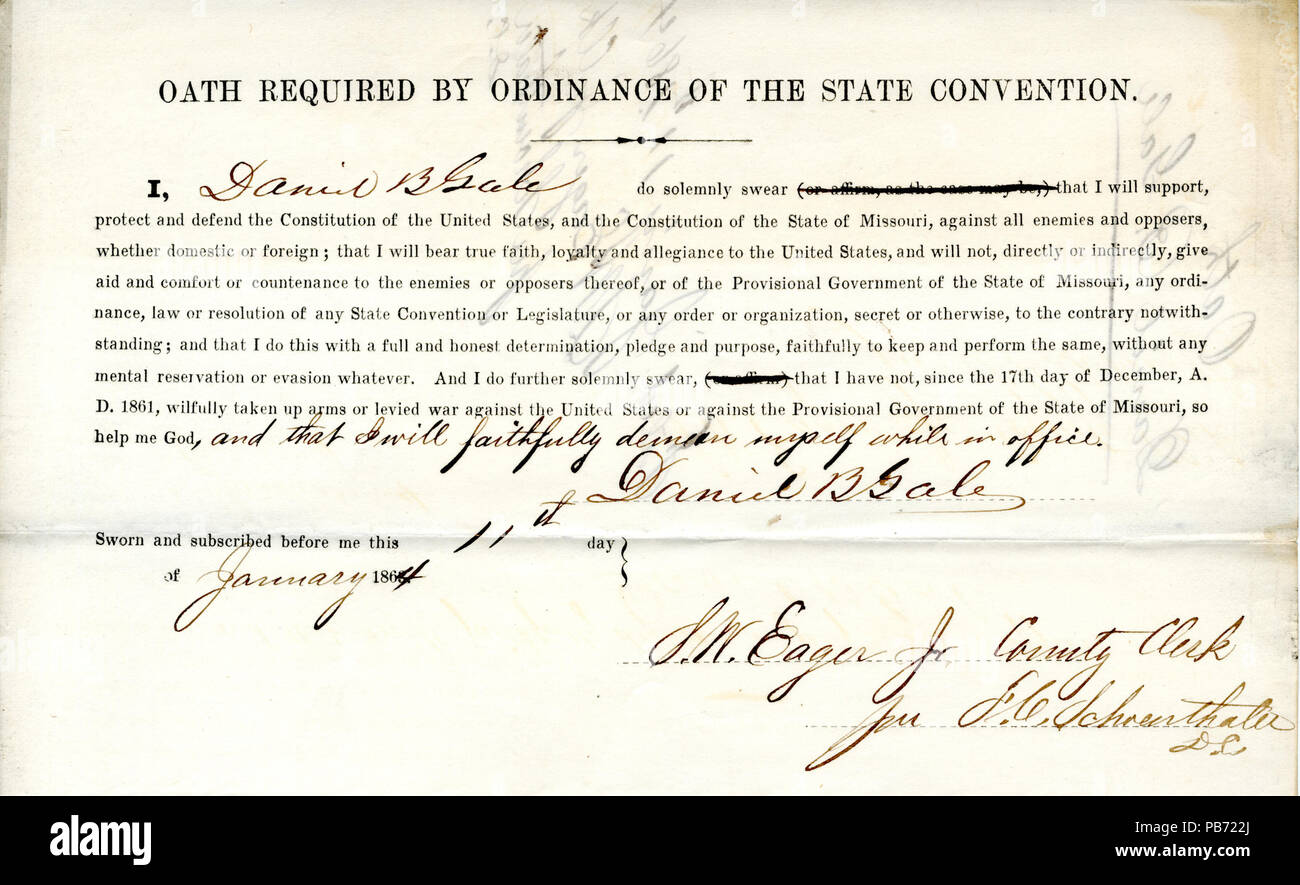 OATH REQUIRED BY ORDINANCE OF THE STATE CONVENTION.
I, Daniel B Gale do solemnly swear (or affirm, as the case may be,) that I will support,
protect and defend the Constitution of the United States, and the Constitution of the State of Missouri, against all enemies and opposers,
whether domestic or foreign; that I will bear true faith, loyalty and allegiance to the United States, and will not, directly or indirectly, give
aid and comfort or countenance to the enemies or opposers thereof, or of the Provisional Government of the State of Missouri, any ordi-
nance, law or resolution of any State Convention or Legislature, or any order or organization, secret or otherwise, to the contrary notwith-
standing; and that I do this with a full and honest determination, pledge and purpose, faithfully to keep and perform the same, without any
mental reservation or evasion whatever. And I do further solemnly swear, (or affirm) that I have not, since the 17th day of December, A.
D. 1861, wilfully taken up arms or levied war against the United States or against the Provisional Government of the State of Missouri, so
help me God, and that I will faithfully demean myself while in office.
Daniel B Gale
Sworn and subscribed before me this 11th day
of January 1864
S. W. Eager Jr County Clerk
per F. C. Schoenthaler
D C
alamy
Image ID: PB722J
www.alamy.com